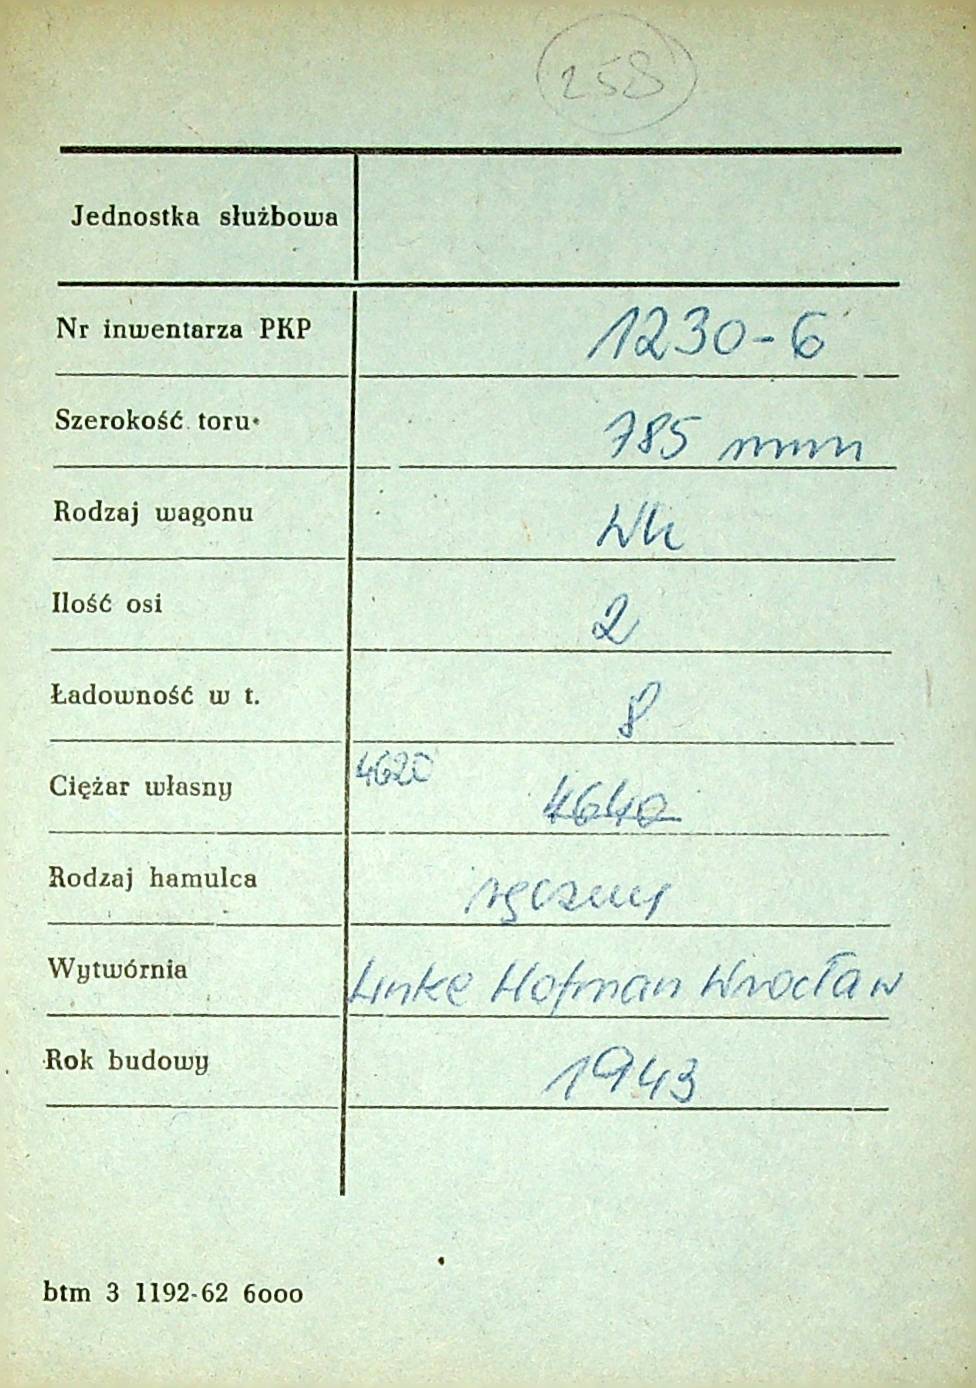 258
Jednostka służbowa
Nr inwentarza PKP 1230-6
Szerokość toru 785 mm
Rodzaj wagonu Wh
Ilość osi 2
Ładowność w t. 8
Ciężar własny 4620 4640
Rodzaj hamulca ręczny
Wytwórnia Linke Hofman Wrocław
Rok budowy 1943
btm 3 1192-62 6ooo